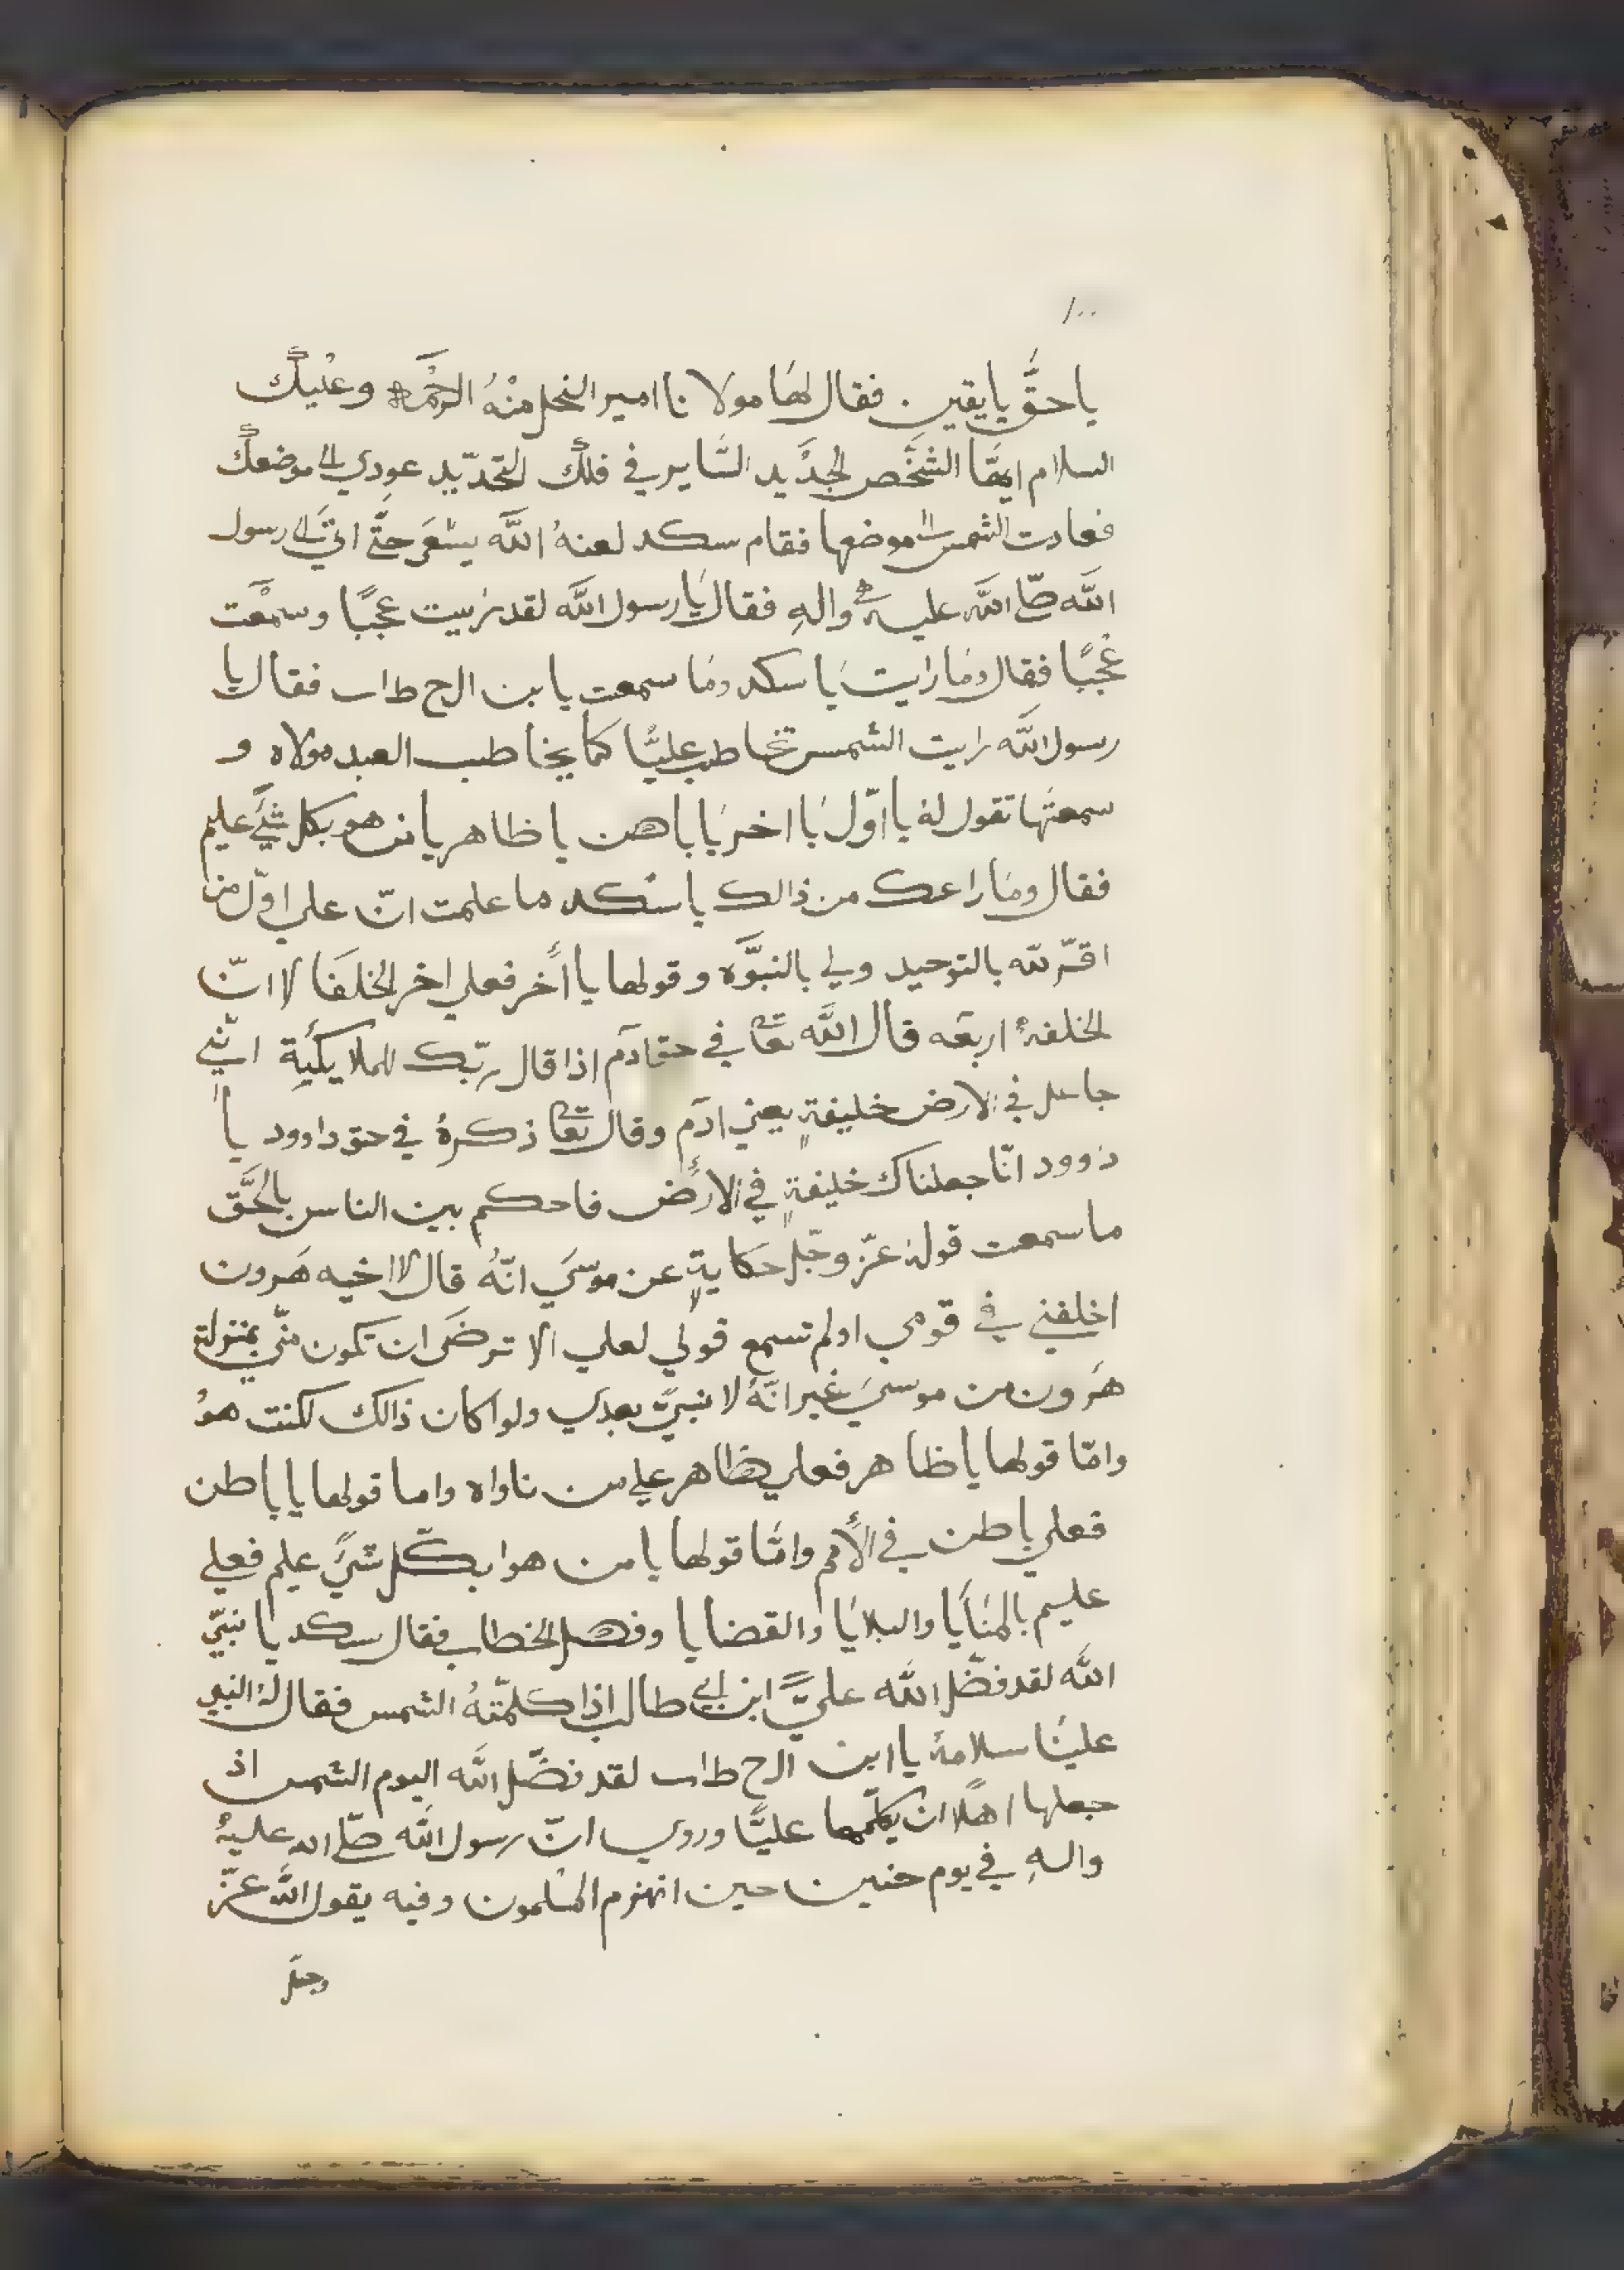 ١٠٠
يا حقَّ يا يقين . فقال لهَا مولانا امير النحل منْهُ الرحْمَه وعليكَ
السلام ايهَّا الشخَّص الجدَّيد السَّاير في فلكَ التحدّيد عودي الى موضعكَ
فعادت الشمس الى موضعها فقام سكد لعنهُ اللَّه يسْعَى حتَّى اتىَ الى رسول
اللَّه صلّى اللَّه عليه والهِ فقال يَا رسول اللَّه لقد رئيت عجبًا وسمعْت
عجَبًا فقال ومَا رايت يَا سكد ومَا سمعت يا بن الح ط اب فقال يا
رسول اللَّه رايت الشمس تخاطب عليًّا كما يخاطب العبد مولاه و
سمعتَها تقول لهُ يا اوّل يَا اخر يَا باهن يا ظاهر يا من هو بكل شيَء عليم
فقال ومَا راعك من ذالك يا سكد ما علمت انّ علي اوّل من
اقرّ للّه بالتوحيد ولي بالنبوَّه وقولها يا أخَر فعلي اخر الخلفَا لا انّ
الخلفهُ اربعَه قال اللَّه تعَا في حق ادَم اذا قال ربّك للملايكَية انّي
جاعل في الارض خليفةٍ يعني ادَم وقال تعَا ذكرهُ في حق داوود يا
دَوود انّا جعلناك خليفةٍ في الارَض فاحكم بين الناس بالحَّق
ما سمعت قولهُ عزّ وجّل حكايةٍ عن موسىَ انّهُ قال لا اخيه هَرون
اخلفني في قومي اولم تسمع قولي لعلي الا ترضَى ان تكون منّي بمنزلة
هَرون من موسىَ غير انّهُ لا نبيّ بعدي ولوا كان ذالك لكنت هوُ
وامّا قولها يا ظاهر فعلي ظاهر على من ناواه واما قولها يا باطن
فعلي باطن في الأمم وامَّا قولها يا من هوا بكّل شيًء عليم فعلي
عليم بالمنَايَا والبلايَا والقضايا وفصل الخطاب فقال سكد يا نبيّ
اللَّه لقد فضّل اللَّه عليًّ ابن ابي طالب اذا كلمّتهُ الشمس فقال لهُ النبي
علينَا سلامهُ يا ابن الح ط اب لقد فضّل اللَّه اليوم الشمس اذ
جعلها اهلًا ان يكلّمها عليًّا وروي انّ رسول اللَّه صلّى اله عليهُ
والهِ في يوم حنين حين انهزم المسْلمون وفيه يقول اللَّه عزّ
وجلّ